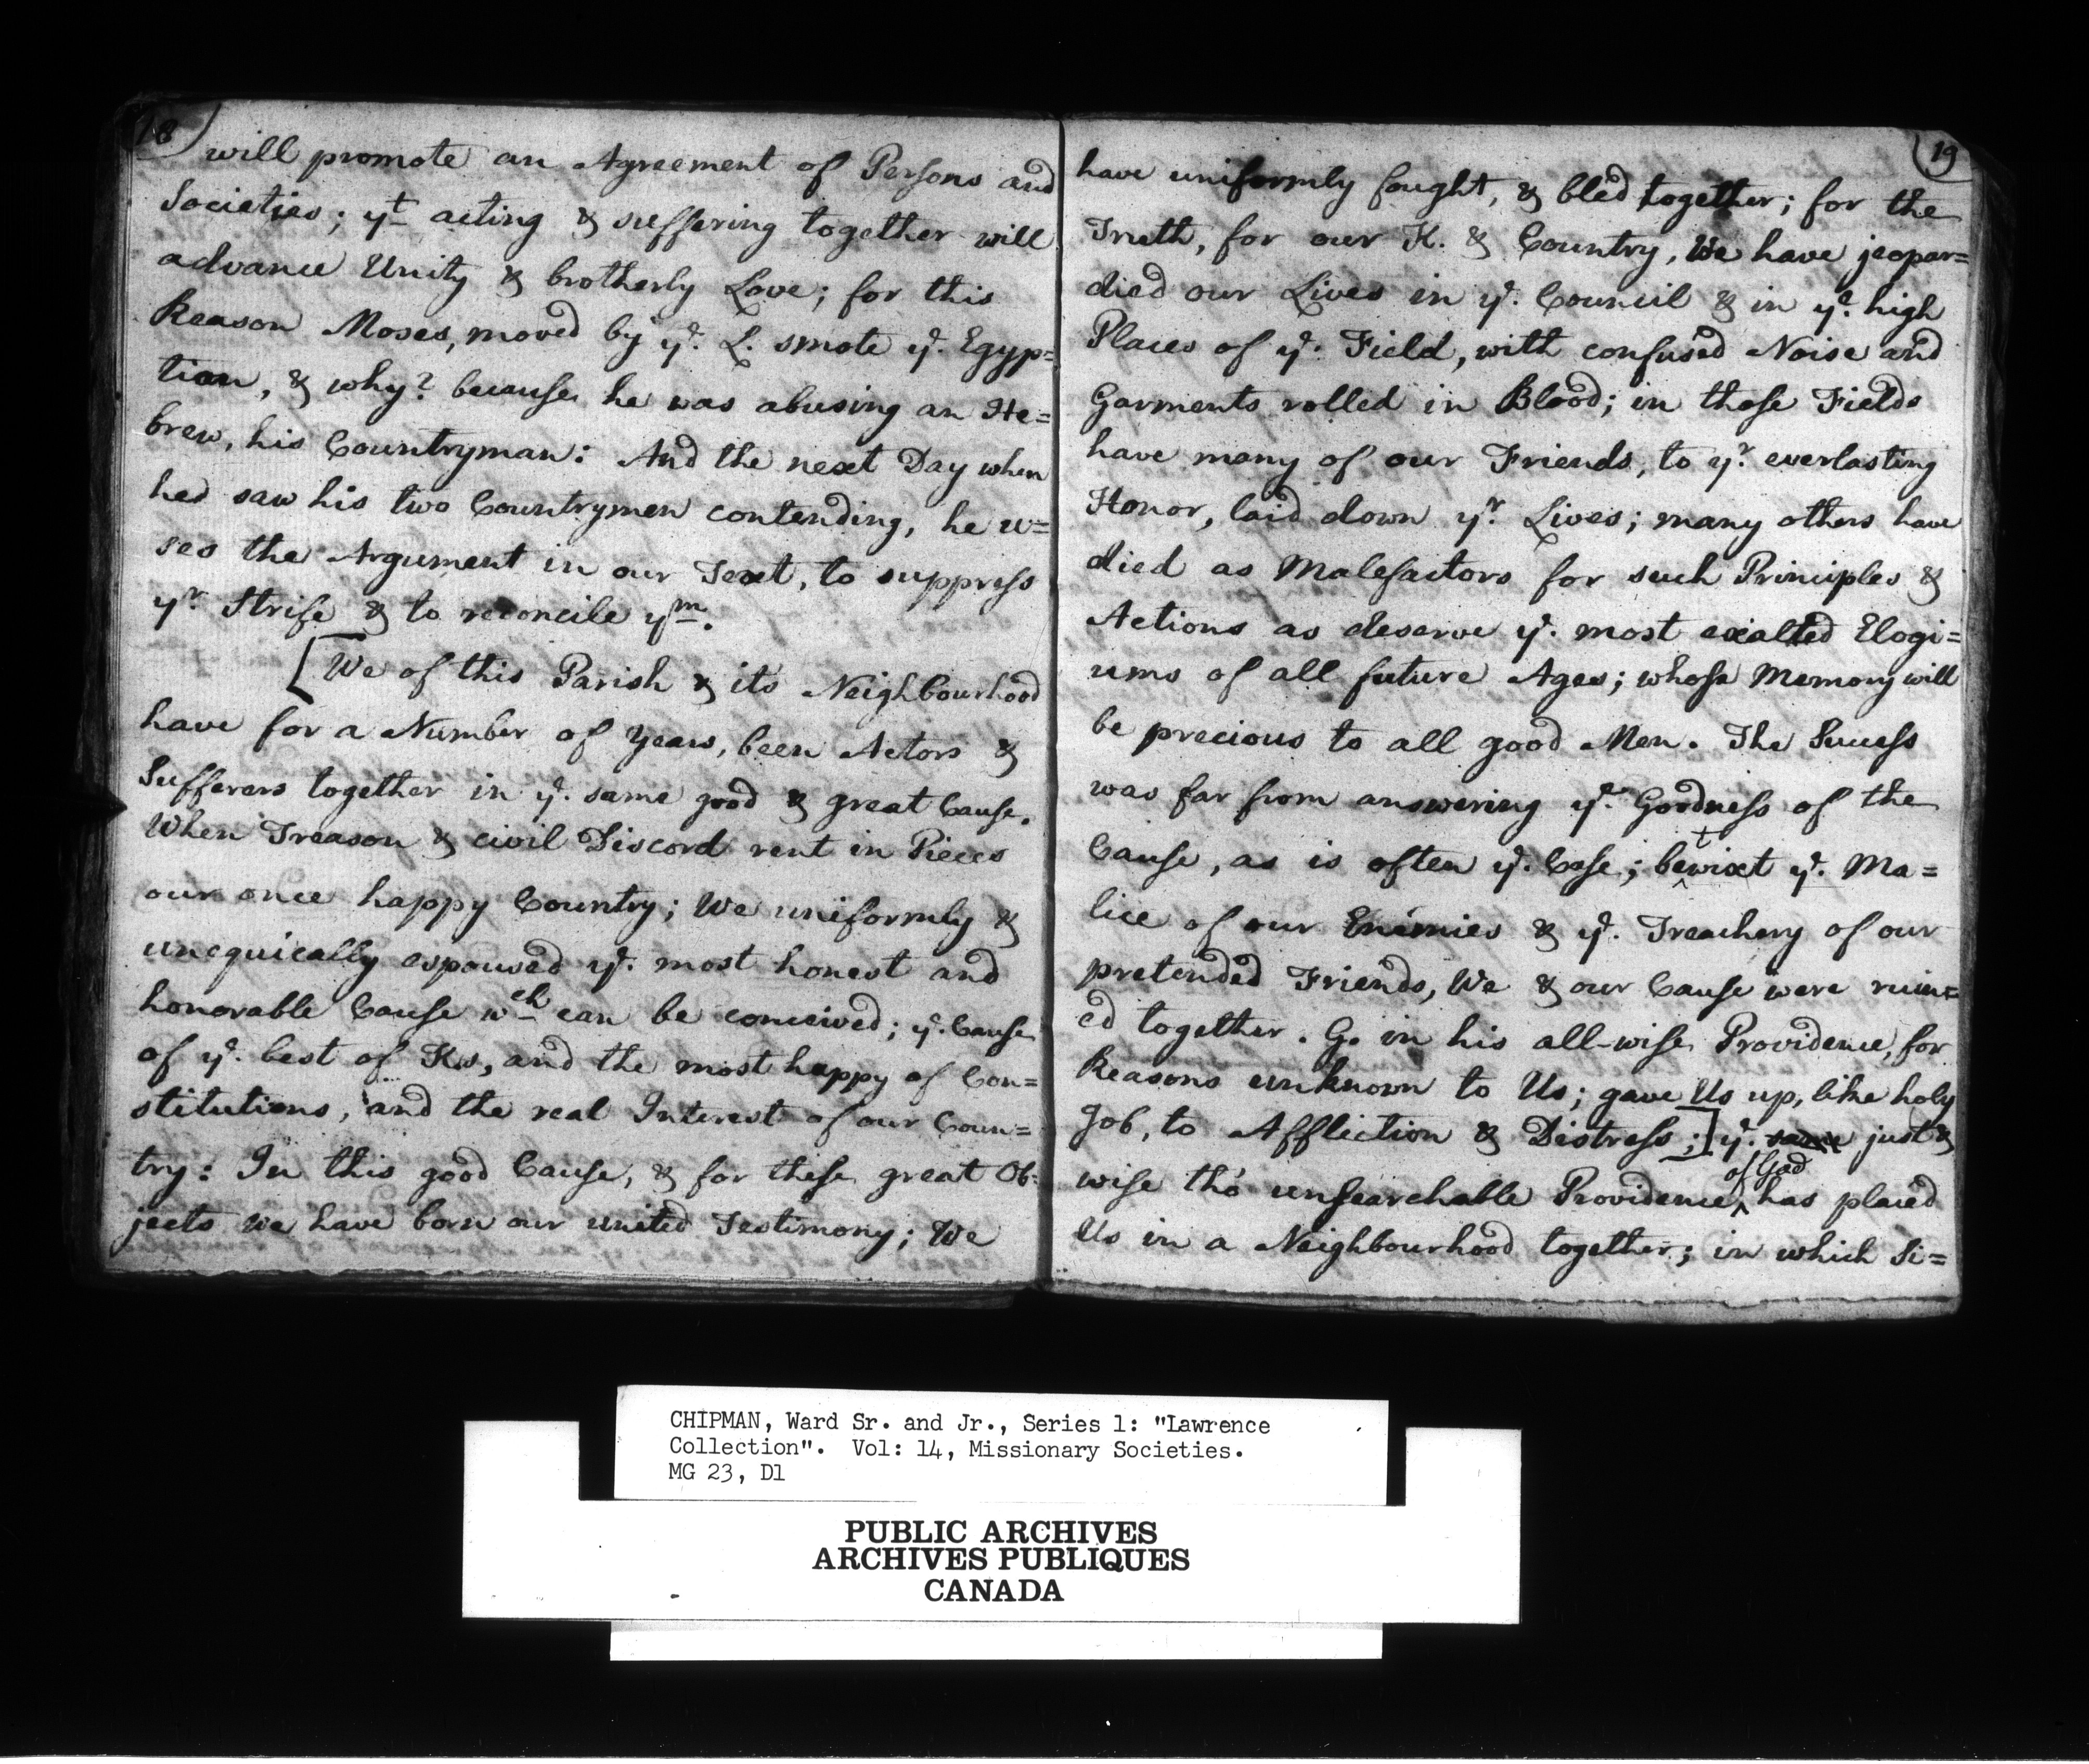 18
will promote an Agreement of Persons and
Societies; yt acting & suffering together will
advance Unity & brotherly Love; for this
Reason Moses, moved by ye. L. smote ye. Egyp=
tian, & why? because he was abusing an He=
brew, his Countryman: And the next Day when
hed saw his two Countrymen contending, he u=
ses the Argument in our Text, to suppress
yr. Strife & to reconcile ym.
[We of this Parish & its Neighbourhood
have for a Number of Years, been Actors &
Sufferers together in ye. same good & great Cause.
When Treason & civil Discord rent in Pieces
our once happy Country; We uniformly &
unequically espoused ye. most honest and
honorable Cause wch can be conceived; ye. Cause
of ye. best of Ks, and the most happy of Con=
stitutions, and the real Interest of our Coun=
try: In this good Cause, & for these great Ob=
jects we have born our united Testimony; We
19
have uniformly fought, & bled together; for the
Truth, for our K. & Country, We have jeopar=
died our Lives in ye. Council & in ye. high
Places of ye. Field, with confused Noise and
Garments rolled in Blood; in those Fields
have many of our Friends, to yr. everlasting
Honor, laid down yr. Lives; many others have
died as Malefactors for such Principles &
Actions as deserve ye. most exalted Elogi=
ums of all future Ages; whose Memory will
be precious to all good Men. The Success
was far from answering ye. Goodness of the
Cause, as is often ye. Case; betwixt ye. Ma=
lice of our Enemies & ye. Treachery of our
pretended Friends, We & our Cause were ruin=
ed together. G. in his all-wise Providence, for
Reasons unknown to Us; gave Us up, like holy
Job, to Affliction & Distress;] ye. same just &
wise tho' unsearchable Providence of God has placed
Us in a Neighbourhood together; in which Si=
CHIPMAN, Ward Sr. and Jr., Series 1: "Lawrence
Collection". Vol: 14, Missionary Societies.
MG 23, D1
PUBLIC ARCHIVES
ARCHIVES PUBLIQUES
CANADA